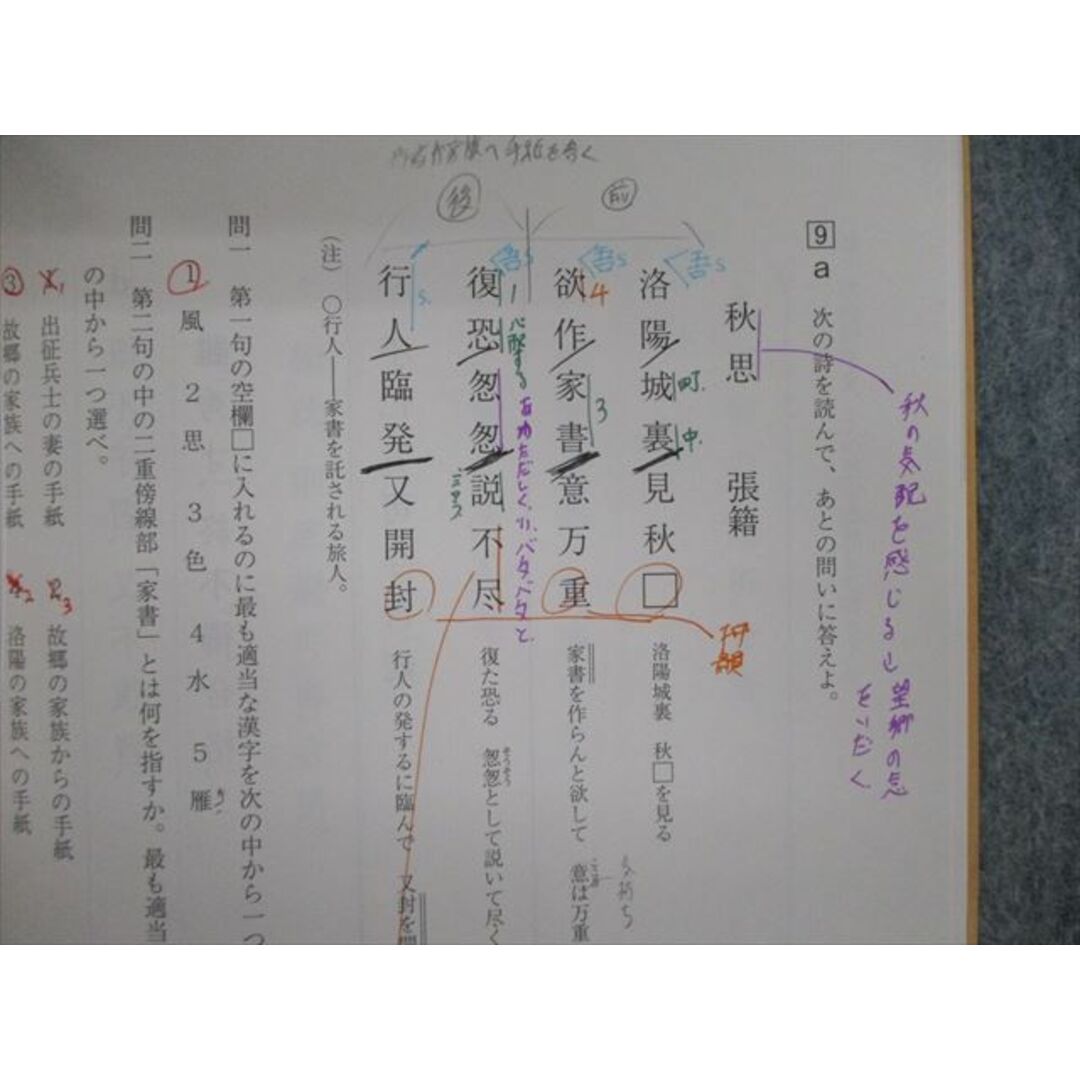 9 a 次の詩を読んで、あとの問いに答えよ。
秋の気配を感じると
望郷の念
をいだく
秋思 張籍
洛陽城裏見秋□ 洛陽城裏 秋□を見る
町 中
吾S
欲作家書意万重 家書を作らんと欲して 意は万重
吾S
4
3
気持ち
押韻
復恐怱怱説不尽 復た恐る 怱怱として説いて尽く
そうそう
吾S
心配する
あわただしく
バタバタと
行人臨発又開封 行人の発するに臨んで 又封を開
S
前
後
(注) ○行人――家書を託される旅人。
問一 第一句の空欄□に入れるのに最も適当な漢字を次の中から一つ
1 風 2 思 3 色 4 水 5 雁
問二 第二句の中の二重傍線部「家書」とは何を指すか。最も適当
の中から一つ選べ。
出征兵士の妻の手紙 故郷の家族からの手紙
3 故郷の家族への手紙 洛陽の家族への手紙